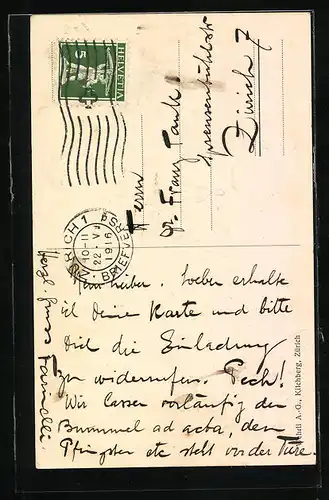 HELVETIA
5
ZÜRICH 1
BRIEFVERS
22 V
10-11
1916
Herrn
Dr. Franz
Zürich 7
Mein Lieber. Soeben erhalte
ich deine Karte und bitte
dich die Einladung
zu widerrufen. Pech!
Wir lassen vorläufig den
Bummel ad acta, denn
Pfingsten etc steht vor der Türe.
Herzl. Gruss
A.-G., Kilchberg, Zürich